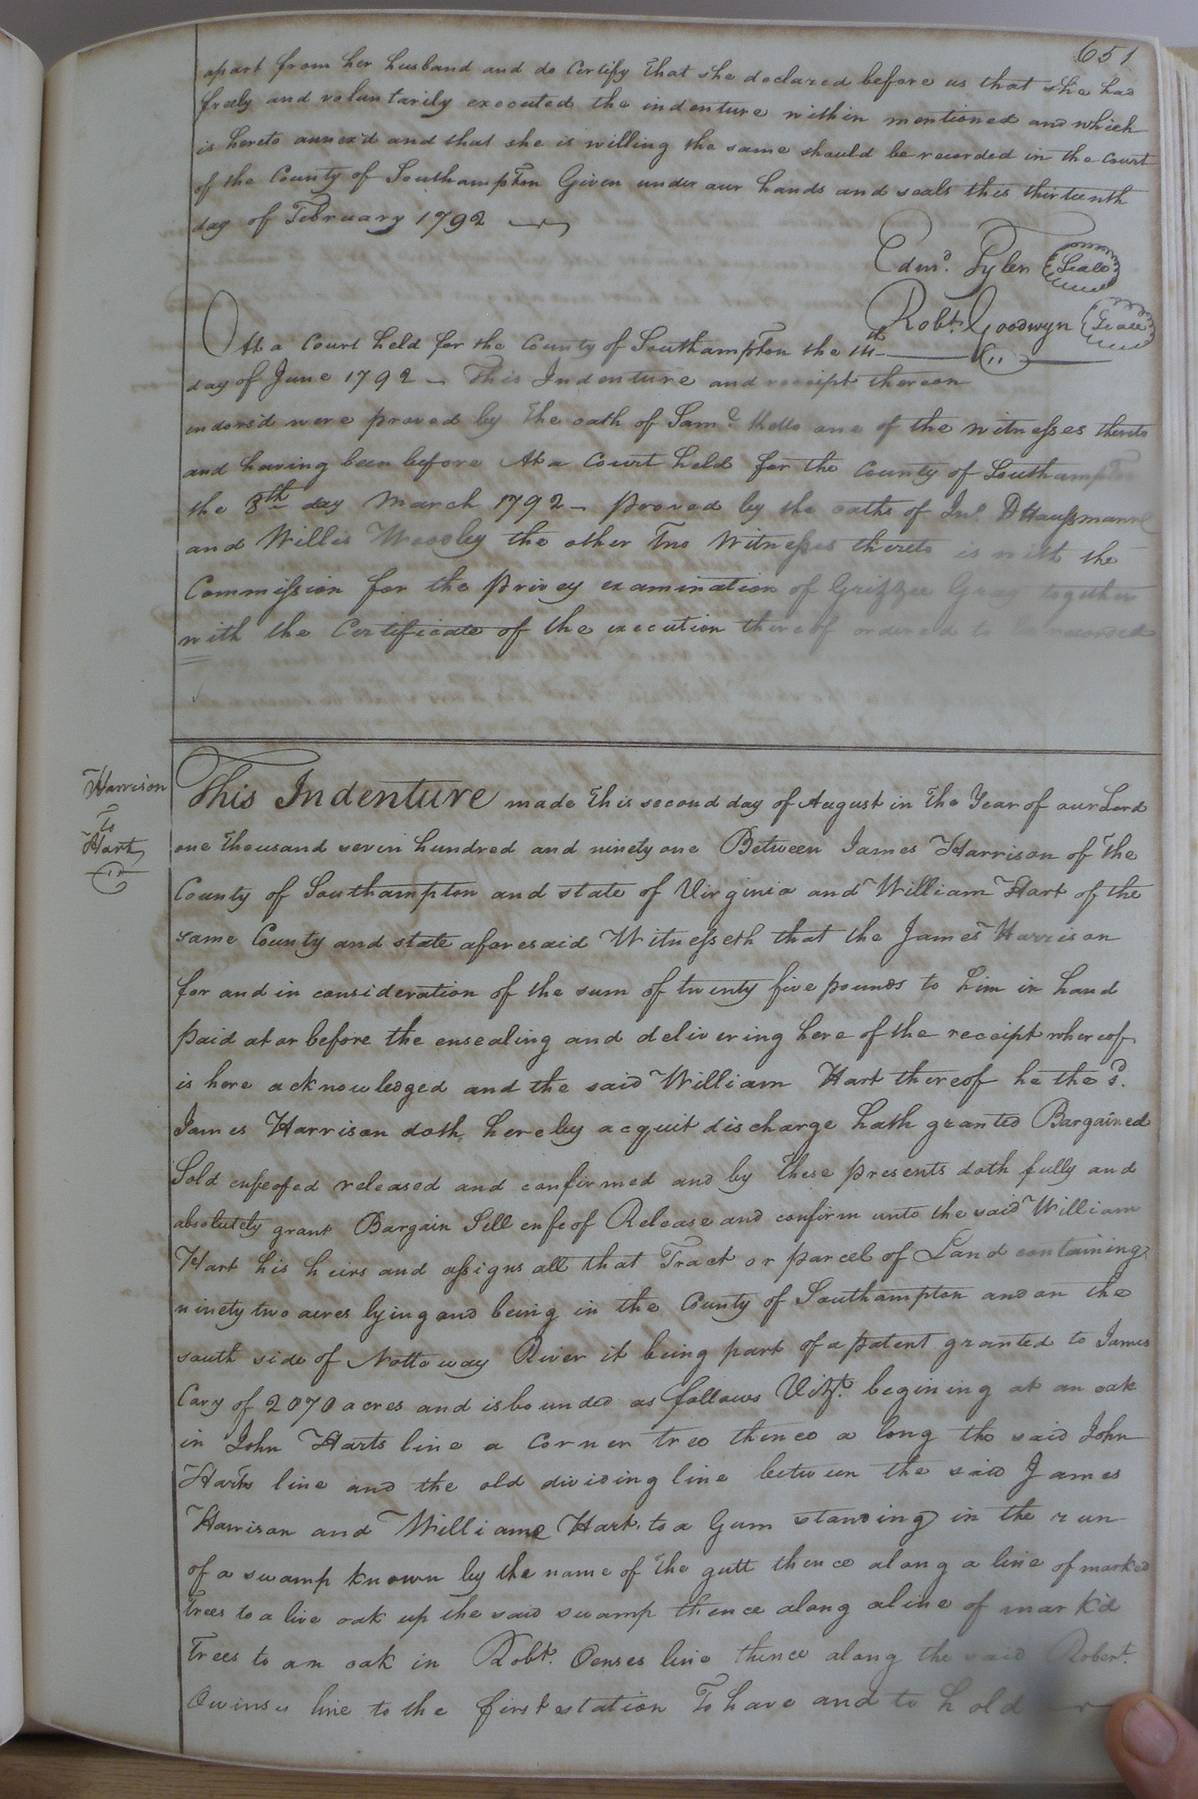 651
apart from her husband and do Certify that she declared before us that she had
freely and voluntarily executed the indenture within mentioned and which
is hereto annex'd and that she is willing the same should be recorded in the Court
of the County of Southampton Given under our hands and seals this thirteenth
day of February 1792
Edmd. Tyler (Seal)
Robt. Goodwyn (Seal)
At a Court held for the County of Southampton the 14th
day of June 1792 – This Indenture and receipt thereon
indors'd were proved by the oath of Saml. Kello one of the witnesses thereto
and having been before At a Court held for the County of Southampton
the 8th day March 1792 – proved by the oaths of Jno. D Haussmann
and Willis Woodley the other Two Witnesses thereto is with the
Commission for the privey examination of Grizzee Gray together
with the Certificate of the execution thereof ordered to be recorded
Harrison
To
Hart
This Indenture made this second day of August in the Year of our Lord
one thousand seven hundred and ninety one Between James Harrison of the
County of Southampton and state of Virginia and William Hart of the
same County and state aforesaid Witnesseth that the James Harrison
for and in consideration of the sum of twenty five pounds to him in hand
paid at or before the ensealing and delivering here of the receipt whereof
is here acknowledged and the said William Hart thereof he the sd.
James Harrison doth hereby acquit discharge hath granted Bargained
Sold enfeofed released and confirmed and by these presents doth fully and
absolutely grant Bargain Sell enfeof Release and confirm unto the said William
Hart his heirs and assigns all that Tract or parcel of Land containing
ninety two acres lying and being in the County of Southampton and on the
south side of Nottoway River it being part of a patent granted to James
Cary of 2070 acres and is bounded as follows Vizt. begining at an oak
in John Harts line a corner tree thence a long the said John
Harts line and the old dividing line between the said James
Harrison and William Hart to a Gum standing in the run
of a swamp known by the name of the gutt thence along a line of marked
trees to a live oak up the said swamp thence along a line of mark'd
Trees to an oak in Robt. Oenses line thence along the said Robert
Owinses line to the first station To have and to hold